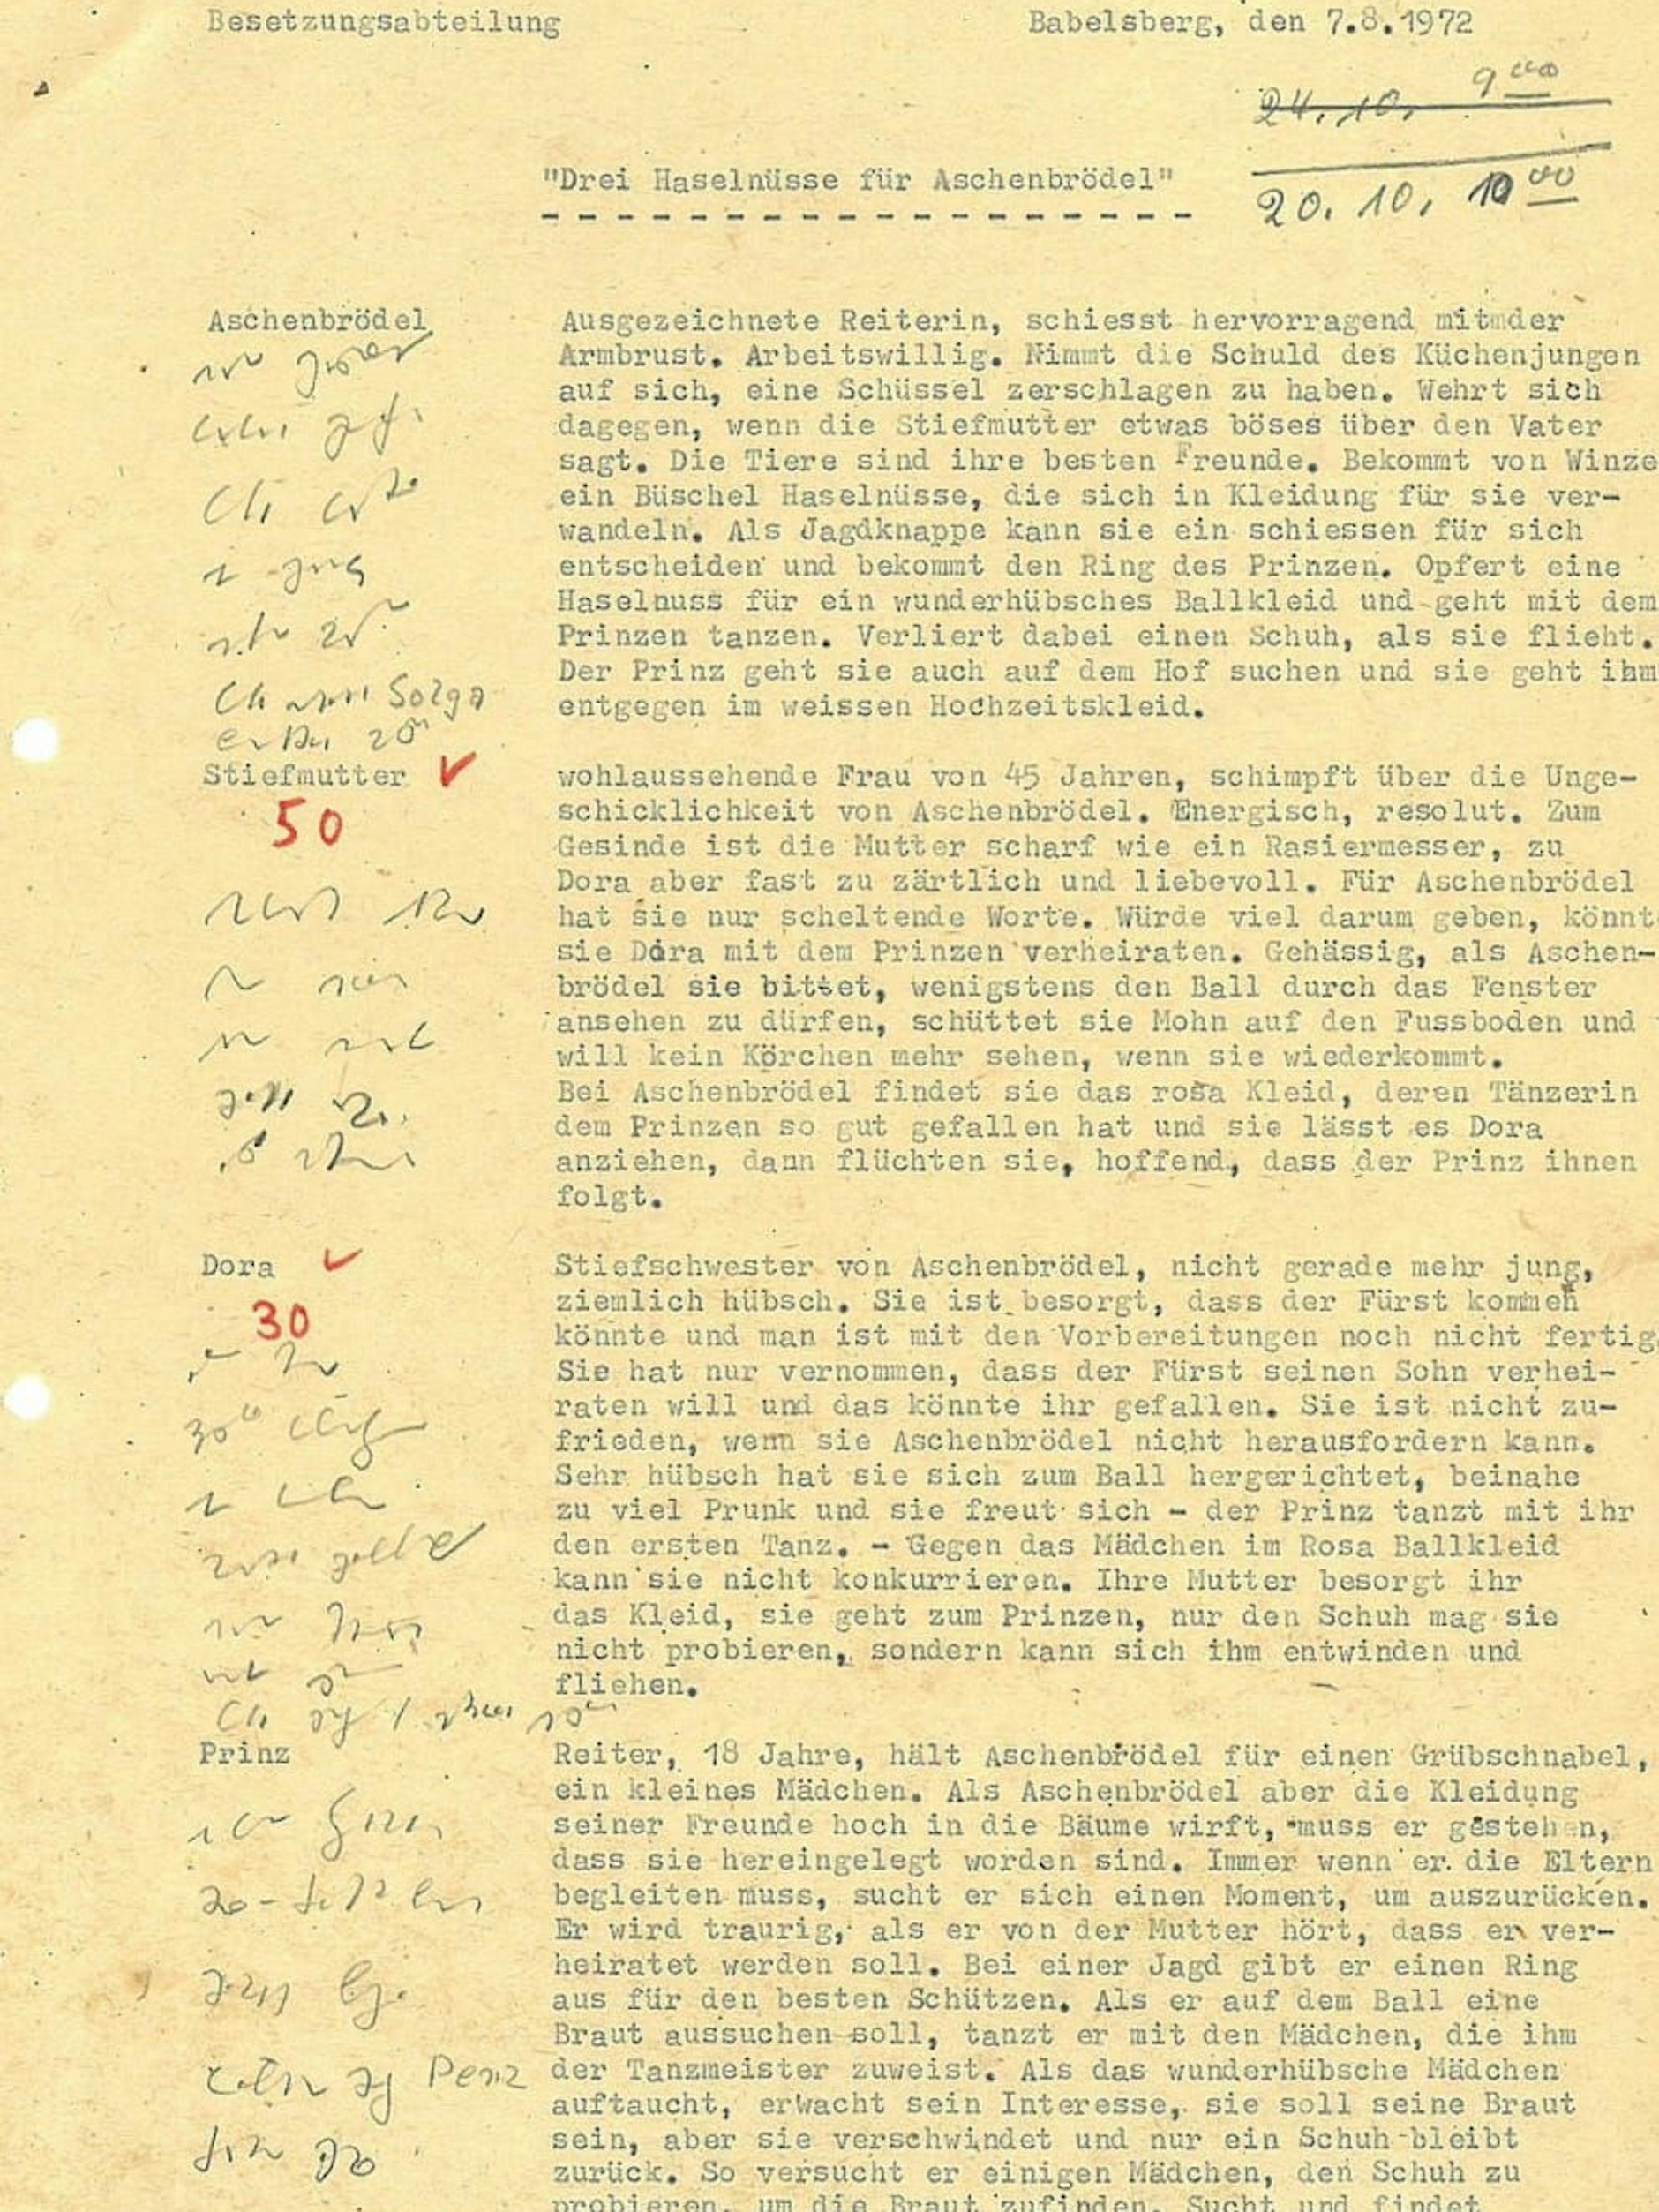 Besetzungsabteilung Babelsberg, den 7.8.1972
24.10. 9 00
"Drei Haselnüsse für Aschenbrödel"
20. 10. 10 00
Aschenbrödel Ausgezeichnete Reiterin, schiesst hervorragend mitmder
Armbrust. Arbeitswillig. Nimmt die Schuld des Küchenjungen
auf sich, eine Schüssel zerschlagen zu haben. Wehrt sich
dagegen, wenn die Stiefmutter etwas böses über den Vater
sagt. Die Tiere sind ihre besten Freunde. Bekommt von Winze
ein Büschel Haselnüsse, die sich in Kleidung für sie ver-
wandeln. Als Jagdknappe kann sie ein schiessen für sich
entscheiden und bekommt den Ring des Prinzen. Opfert eine
Haselnuss für ein wunderhübsches Ballkleid und geht mit dem
Prinzen tanzen. Verliert dabei einen Schuh, als sie flieht.
Der Prinz geht sie auch auf dem Hof suchen und sie geht ihm
entgegen im weissen Hochzeitskleid.
Stiefmutter wohlaussehende Frau von 45 Jahren, schimpft über die Unge-
50 schicklichkeit von Aschenbrödel. Energisch, resolut. Zum
Gesinde ist die Mutter scharf wie ein Rasiermesser, zu
Dora aber fast zu zärtlich und liebevoll. Für Aschenbrödel
hat sie nur scheltende Worte. Würde viel darum geben, könnt
sie Dora mit dem Prinzen verheiraten. Gehässig, als Aschen-
brödel sie bittet, wenigstens den Ball durch das Fenster
ansehen zu dürfen, schüttet sie Mohn auf den Fussboden und
will kein Körchen mehr sehen, wenn sie wiederkommt.
Bei Aschenbrödel findet sie das rosa Kleid, deren Tänzerin
dem Prinzen so gut gefallen hat und sie lässt es Dora
anziehen, dann flüchten sie, hoffend, dass der Prinz ihnen
folgt.
Dora Stiefschwester von Aschenbrödel, nicht gerade mehr jung,
30 ziemlich hübsch. Sie ist besorgt, dass der Fürst kommen
könnte und man ist mit den Vorbereitungen noch nicht fertig
Sie hat nur vernommen, dass der Fürst seinen Sohn verhei-
raten will und das könnte ihr gefallen. Sie ist nicht zu-
frieden, wenn sie Aschenbrödel nicht herausfordern kann.
Sehr hübsch hat sie sich zum Ball hergerichtet, beinahe
zu viel Prunk und sie freut sich - der Prinz tanzt mit ihr
den ersten Tanz. - Gegen das Mädchen im Rosa Ballkleid
kann sie nicht konkurrieren. Ihre Mutter besorgt ihr
das Kleid, sie geht zum Prinzen, nur den Schuh mag sie
nicht probieren, sondern kann sich ihm entwinden und
fliehen.
Prinz Reiter, 18 Jahre, hält Aschenbrödel für einen Grübschnabel,
ein kleines Mädchen. Als Aschenbrödel aber die Kleidung
seiner Freunde hoch in die Bäume wirft, muss er gestehen,
dass sie hereingelegt worden sind. Immer wenn er die Eltern
begleiten muss, sucht er sich einen Moment, um auszurücken.
Er wird traurig, als er von der Mutter hört, dass er ver-
heiratet werden soll. Bei einer Jagd gibt er einen Ring
aus für den besten Schützen. Als er auf dem Ball eine
Braut aussuchen soll, tanzt er mit den Mädchen, die ihm
der Tanzmeister zuweist. Als das wunderhübsche Mädchen
auftaucht, erwacht sein Interesse, sie soll seine Braut
sein, aber sie verschwindet und nur ein Schuh bleibt
zurück. So versucht er einigen Mädchen, den Schuh zu
probieren, um die Braut zufinden. Sucht und findet